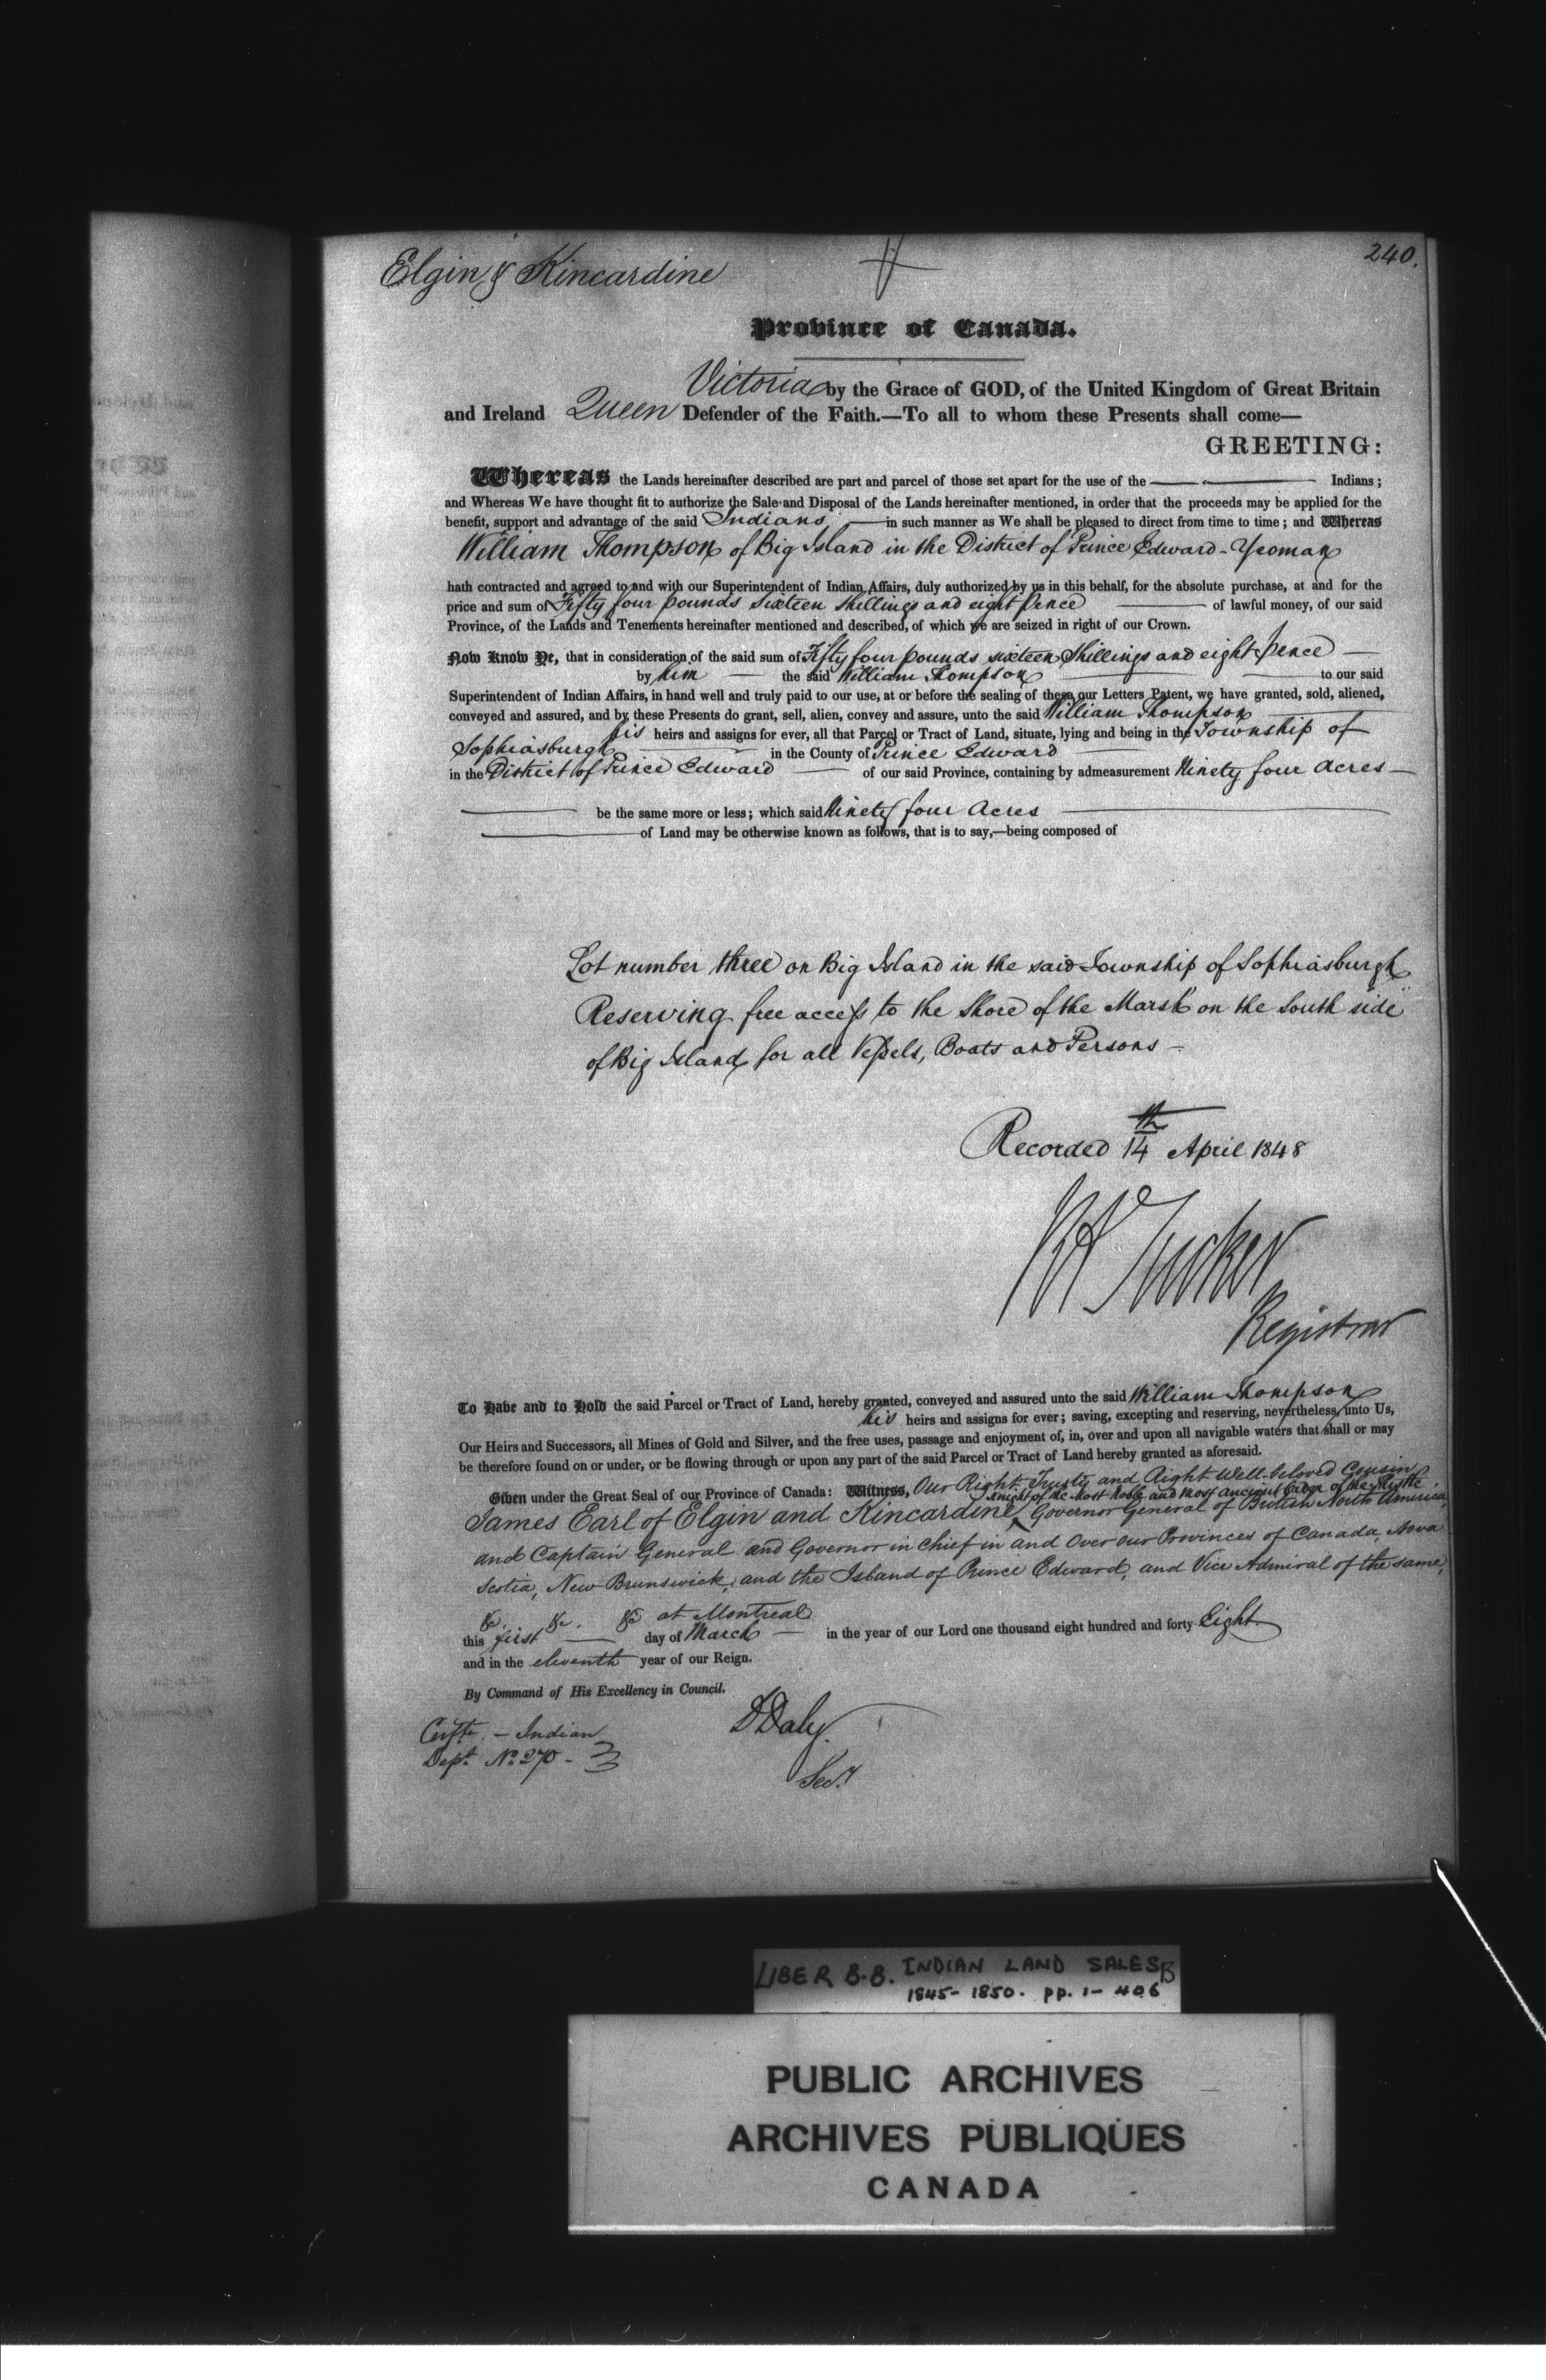 240.
Elgin & Kincardine
Province of Canada.
Victoria by the Grace of GOD, of the United Kingdom of Great Britain
and Ireland Queen Defender of the Faith.—To all to whom these Presents shall come—
GREETING:
Whereas the Lands hereinafter described are part and parcel of those set apart for the use of the — Indians;
and Whereas We have thought fit to authorize the Sale and Disposal of the Lands hereinafter mentioned, in order that the proceeds may be applied for the
benefit, support and advantage of the said Indians — in such manner as We shall be pleased to direct from time to time; and Whereas
William Thompson of Big Island in the District of Prince Edward - Yeoman
hath contracted and agreed to and with our Superintendent of Indian Affairs, duly authorized by us in this behalf, for the absolute purchase, at and for the
price and sum of Fifty four pounds Sixteen Shillings and eight pence — of lawful money, of our said
Province, of the Lands and Tenements hereinafter mentioned and described, of which we are seized in right of our Crown.
Now Know Ye, that in consideration of the said sum of Fifty four pounds sixteen Shillings and eight pence —
by him — the said William Thompson — to our said
Superintendent of Indian Affairs, in hand well and truly paid to our use, at or before the sealing of these our Letters Patent, we have granted, sold, aliened,
conveyed and assured, and by these Presents do grant, sell, alien, convey and assure, unto the said William Thompson
his heirs and assigns for ever, all that Parcel or Tract of Land, situate, lying and being in the Township of
Sophiasburgh — in the County of Prince Edward —
in the District of Prince Edward — of our said Province, containing by admeasurement Ninety four Acres —
— be the same more or less; which said Ninety four Acres —
— of Land may be otherwise known as follows, that is to say,—being composed of
Lot number three on Big Island in the said Township of Sophiasburgh
Reserving free access to the Shore of the Marsh on the South side
of Big Island for all Vessels, Boats and Persons —
Recorded 14th April 1848
RA Tucker
Registrar
To Have and to Hold the said Parcel or Tract of Land, hereby granted, conveyed and assured unto the said William Thompson
his heirs and assigns for ever; saving, excepting and reserving, nevertheless, unto Us,
Our Heirs and Successors, all Mines of Gold and Silver, and the free uses, passage and enjoyment of, in, over and upon all navigable waters that shall or may
be therefore found on or under, or be flowing through or upon any part of the said Parcel or Tract of Land hereby granted as aforesaid.
Given under the Great Seal of our Province of Canada: Witness, Our Right Trusty and Right Well-beloved Cousin
Knight of the Most Noble and Most Ancient Order of the Thistle
James Earl of Elgin and Kincardine, Governor General of British North America,
and Captain General and Governor in Chief in and Over our Provinces of Canada, Nova
Scotia, New Brunswick, and the Island of Prince Edward, and Vice Admiral of the same,
&c. &c. &c at Montreal
this first — day of March — in the year of our Lord one thousand eight hundred and forty-Eight
and in the eleventh year of our Reign.
By Command of His Excellency in Council.
D Daly
Secy
Certfte. - Indian
Dept. No. 270 -
LIBER B.B. INDIAN LAND SALES B
1845- 1850. pp. 1- 406
PUBLIC ARCHIVES
ARCHIVES PUBLIQUES
CANADA